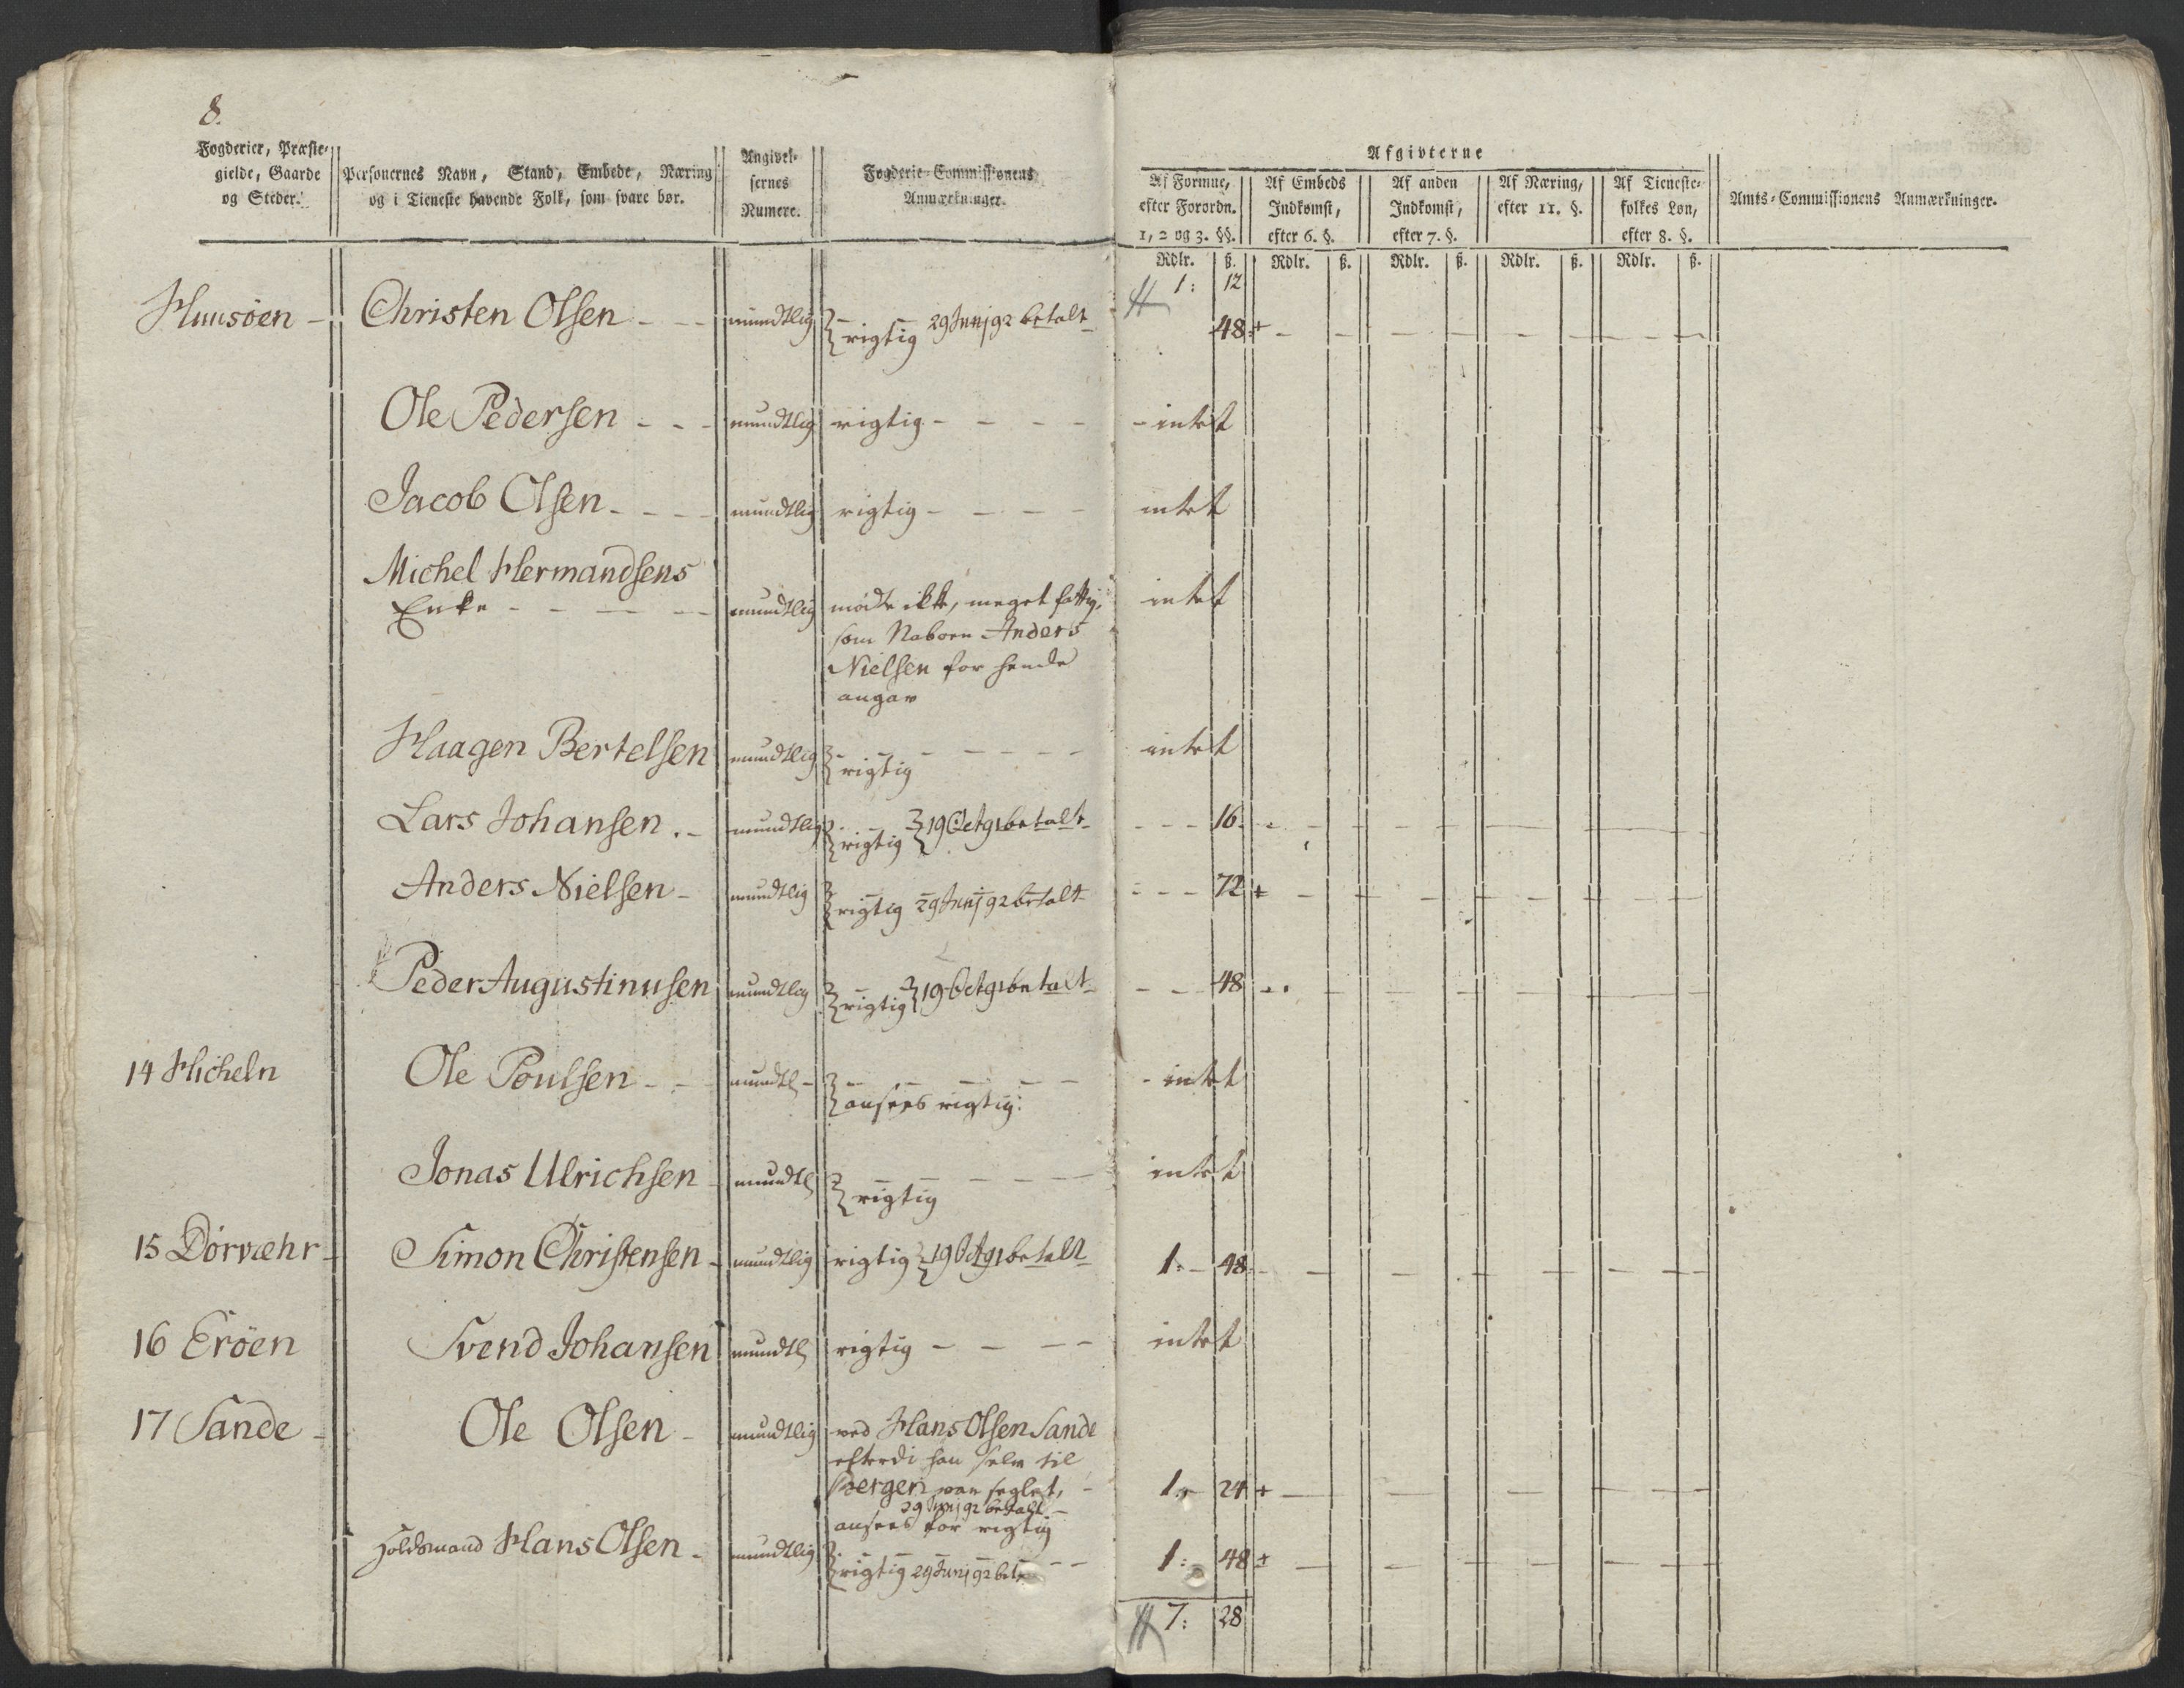 8.
Fogderier, Præste-
gielde, Gaarde
og Steder.
Personernes Navn, Stand, Embede, Næring
og i Tieneste havende Folk, som svare bør.
Angivel-
sernes
Numere.
Fogderie-Commissionens
Anmærkninger.
Afgivterne
Af Formue,
efter Forordn.
1, 2 og 3. §§.
Af Embeds
Indkomst,
efter 6. §.
Af anden
Indkomst,
efter 7. §.
Af Næring,
efter 11. §.
Af Tieneste-
folkes Løn,
efter 8. §.
Amts-Commissionens Anmærkninger.
Rdlr. ß. Rdlr. ß. Rdlr. ß. Rdlr. ß. Rdlr. ß.
1: 12
Huusöen - Christen Olsen - - - mundtlig rigtig 29 Junj 92 betalt 48 +
Ole Pedersen - - - mundtlig rigtig - - - - - intet
Jacob Olsen - - - - mundtlig rigtig - - - - intet
Michel Hermandsens
Enke - - - - - mundtlig mødte ikke, meget fattig, intet
som Naboen Anders
Nielsen for hende
angav
Haagen Bertelsen mundtlig rigtig - - - - - intet
Lars Johansen . - mundtlig rigtig 19 Oct 91 betalt - - - 16.
Anders Nielsen - mundtlig rigtig 29 Junj 92 betalt - - - 72 +
Peder Augustinusen mundtlig rigtig 19 Oct 91 betalt - - - 48
14 Hicheln Ole Poulsen - - mundtl - ansees rigtig. - intet
Jonas Ulrichsen - mundtl rigtig - - - - - intet
15 Dörvæhr - Simon Christensen - mundtlig rigtig 19 Oct 91 betalt 1: - 48
16 Eröen Svend Johansen mundtl rigtig - - - - intet
17 Sande - Ole Olsen - mundtlig ved Hans Olsen Sande
efterdi han selv til
Bergen var seglet, - 1: - 24 +
29 Junj 92 betalt -
ansees for rigtig
Hans Olsen - mundtlig rigtig 29 Junj 92 bet - - 1: 48 +
7: 28